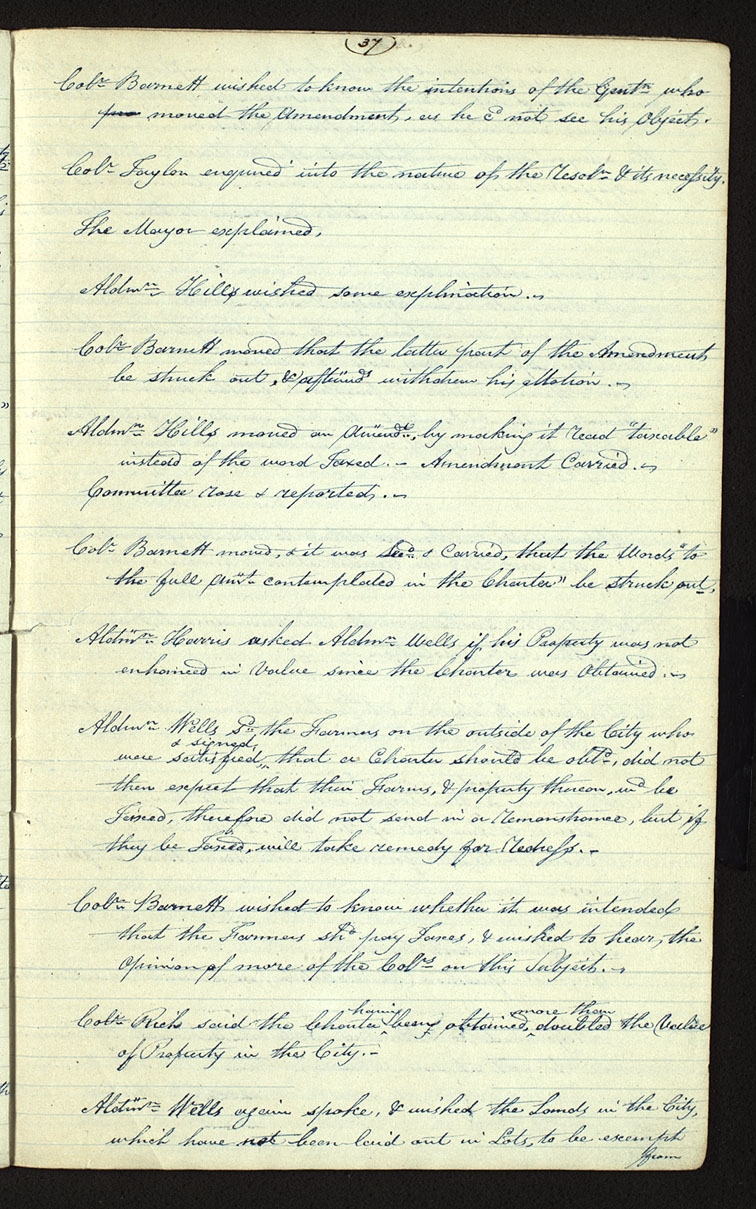 37
Colr. Barnett wished to know the intentions of the Gentn. who
moved the Amendment, as he cd not see his Object.
Colr. Taylor enquired into the nature of the Resoln. & its necessity.
The Mayor explained,
Aldmn. Hills wished some explination.
Colr. Barnett moved that the latter part of the Amendment
be struck out, & afterwds withdrew his Motion.
Aldmn. Hills moved an Amendt., by making it read "taxable"
instead of the word Taxed. - Amendment Carried.
Committee rose & reported.
Colr. Barnett moved, & it was Secd. & Carried, that the Words "to
the full Amt. contemplated in the Charter" be struck out.
Aldmn. Harris asked Aldmn. Wells if his Property was not
enhanced in Value since the Charter was Obtained.
Aldmn. Wells Sd. the Farmers on the outside of the City who
were satisfied, & signed, that a Charter should be obtd., did not
then expect that their Farms, & property thereon, wd be
Taxed, therefore did not send in a remonstrance, but if
they be Taxed, will take remedy for Redress. -
Colr. Barnett wished to know whether it was intended
that the Farmers shd pay Taxes, & wished to hear, the
Opinion of more of the Colrs on this Subject.
Colr. Rich said the Charter having been obtained, more than doubled the Value
of Property in the City. -
Aldmn. Wells again spoke, & wished the Lands in the City,
which have not been laid out in Lots, to be exempt
from